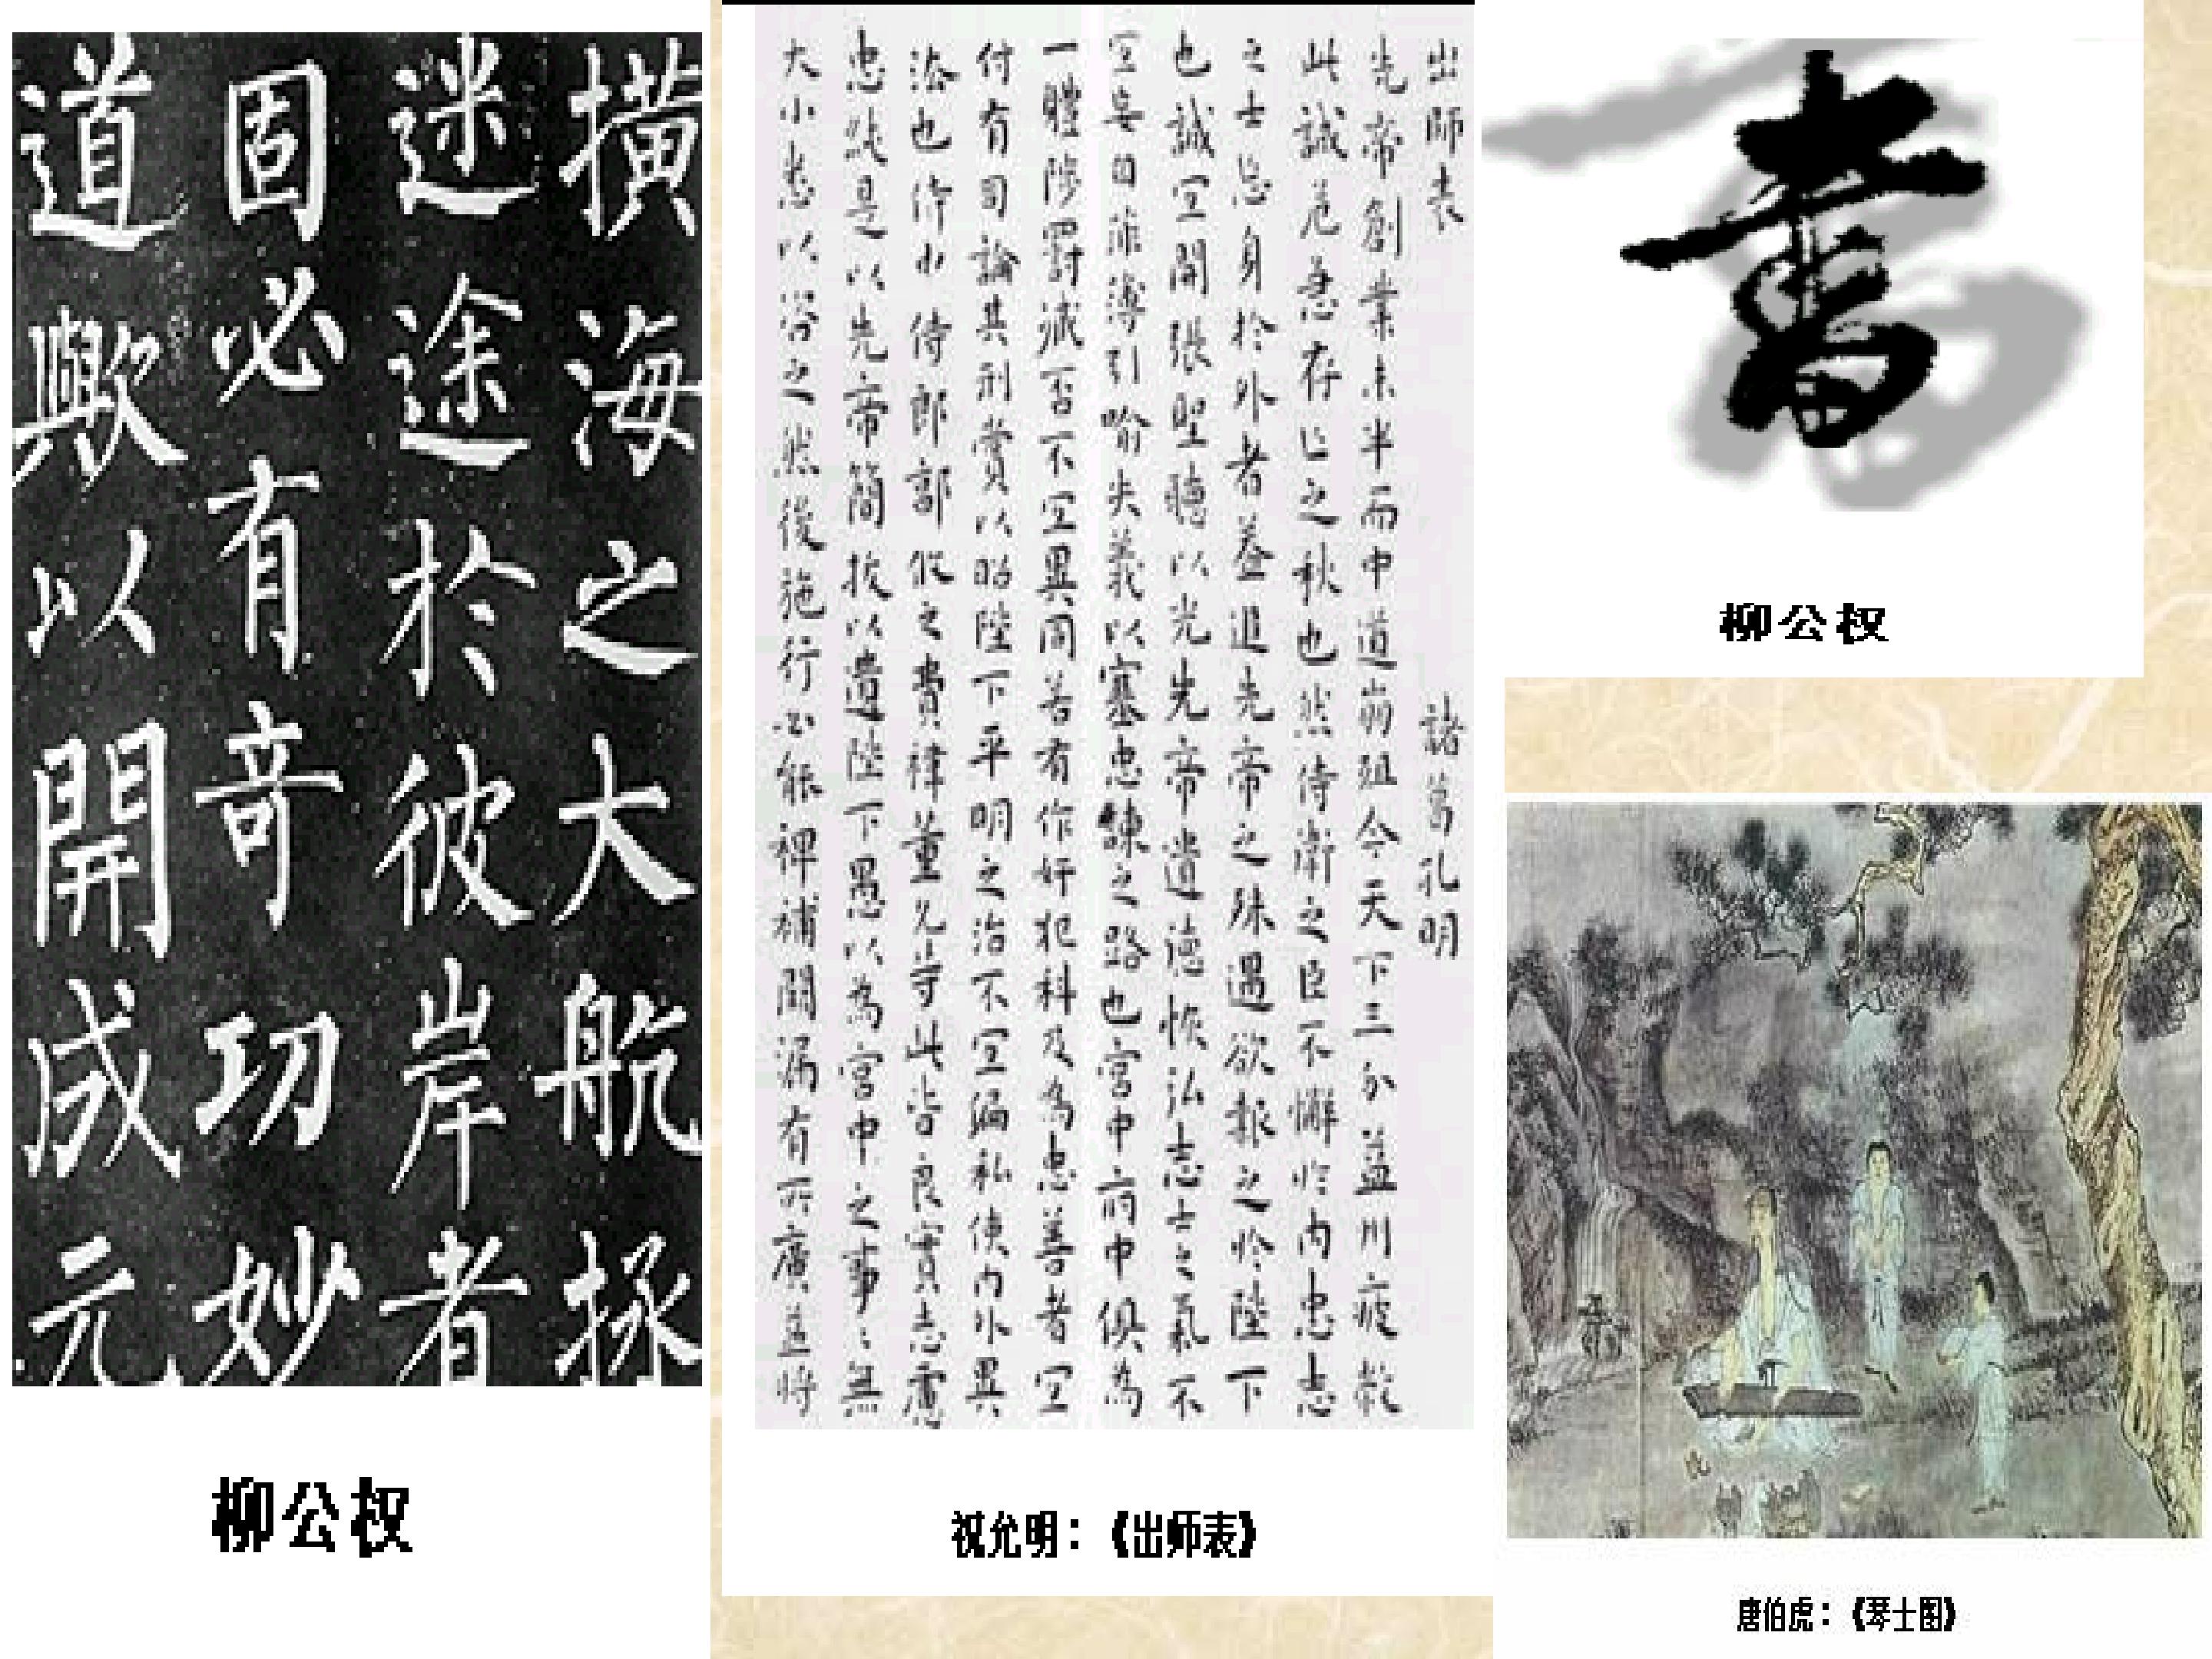 撗海之大航拯
迷途於彼岸者
固必有奇功妙
道歟以開成元
柳公权
出師表 諸葛孔明
先帝創業未半而中道崩殂今天下三分益州疲敝
此誠危急存亡之秋也然侍衛之臣不懈於内忠志
之士忘身於外者蓋追先帝之殊遇欲報之於陛下
也誠宜開張聖聽以光先帝遺德恢弘志士之氣不
宜妄自菲薄引喻失義以塞忠諫之路也宮中府中俱為
一體陟罰臧否不宜異同若有作奸犯科及為忠善者宜
付有司論其刑賞以昭陛下平明之治不宜偏私使内外異
法也侍中侍郎郭攸之費禕董允等此皆良實志慮
忠純是以先帝簡拔以遺陛下愚以為宮中之事〻無
大小悉以咨之然後施行必能裨補闕漏有所廣益將
祝允明：《出师表》
書
柳公权
唐伯虎：《琴士图》